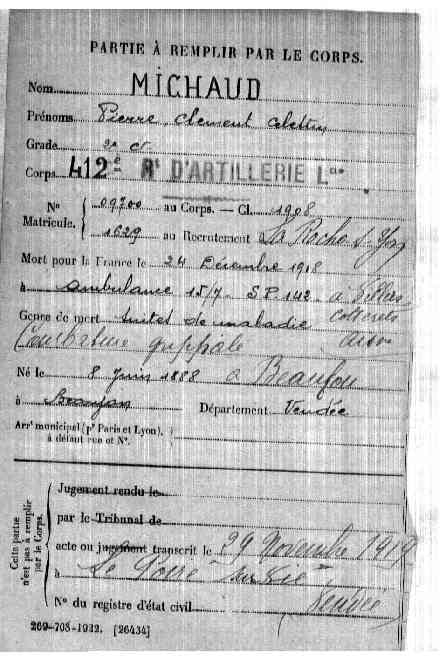 PARTIE À REMPLIR PAR LE CORPS.
Nom MICHAUD
Prénoms Pierre Clement
Grade 2e ct
Corps 412e Rt D'ARTILLERIE Lde
No Matricule. 09700 au Corps. — Cl. 1908
1629 au Recrutement à La Roche s-Yon
Mort pour la France le 24 Décembre 1918
à ambulance 15/7 S.P. 142 à Villers
Cotterets
Genre de mort suites de maladie Aisne
Courbature grippale
Né le 8 Juin 1888 à Beaufou
à Département Vendée
Arrt municipal (pr Paris et Lyon),
à défaut rue et No.
Cette partie n'est pas à remplir par le Corps.
Jugement rendu le
par le Tribunal de
acte ou jugement transcrit le 29 Novembre 1919
à Le Poiré sur Vie
Vendée
No du registre d'état civil
269-708-1922. [26434]